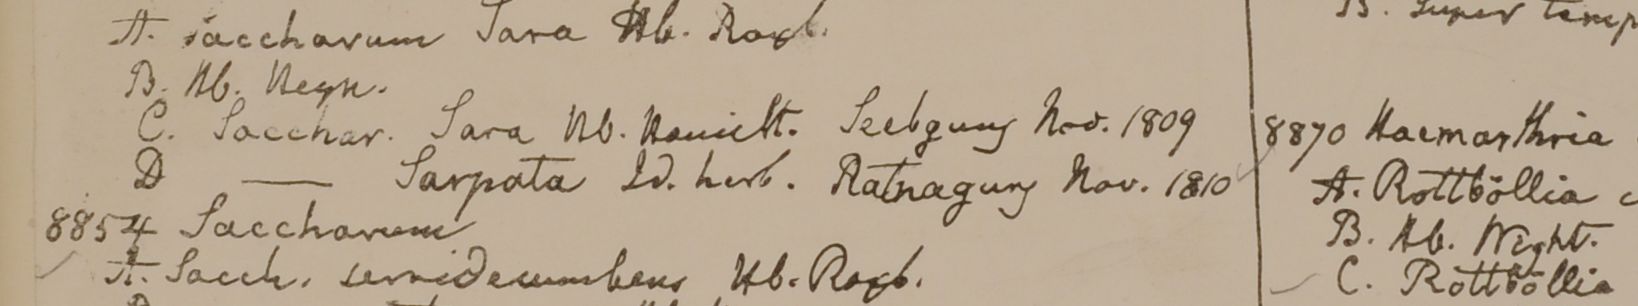 A. Saccharum Sara Hb. Roxb.
B. Hb. Heyn.
C. Sacchar. Sara Hb. Hamilt. Seebgunj Nov. 1809
D —— Sarpata Id. herb. Ratnagunj Nov. 1810
8854 Saccharum
A. Sacch. semidecumbens Hb. Roxb.
B. Super
8870 Haemarthria
A. Rottböllia c
B. Hb. Wight.
C. Rottböllia